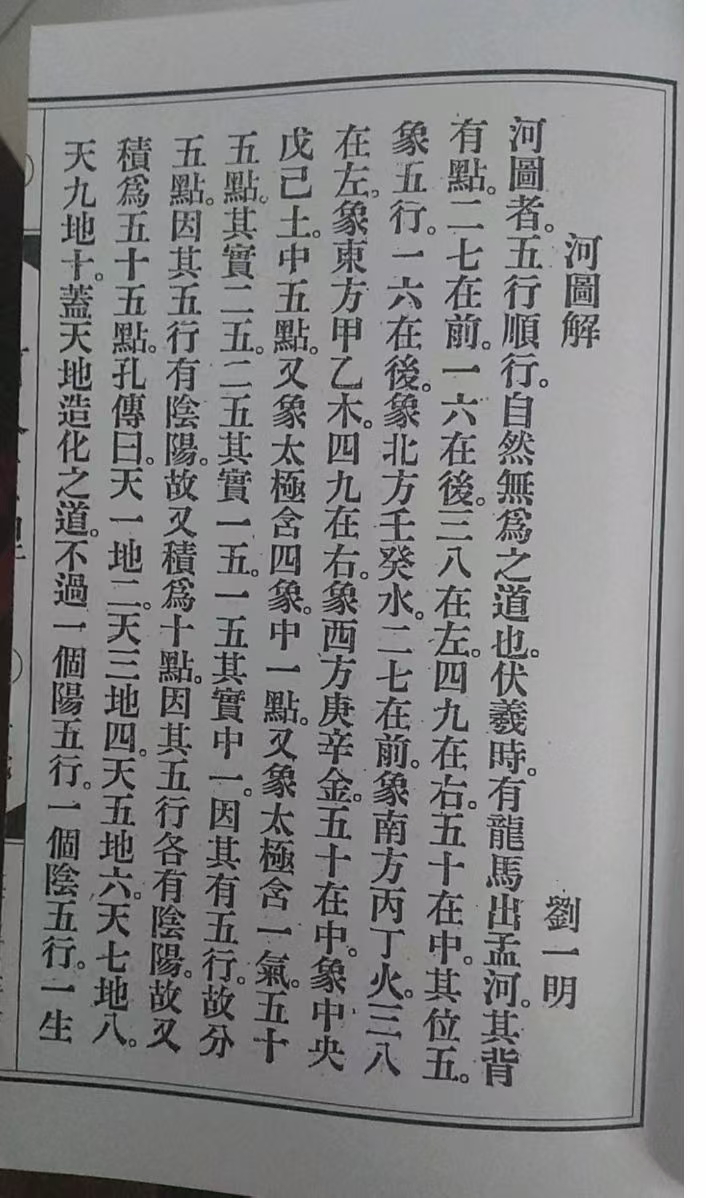 河圖解
劉一明
河圖者。五行順行。自然無爲之道也。伏羲時。有龍馬出孟河。其背
有點。二七在前。一六在後。三八在左。四九在右。五十在中。其位五。
象五行。一六在後。象北方壬癸水。二七在前。象南方丙丁火。三八
在左。象東方甲乙木。四九在右。象西方庚辛金。五十在中。象中央
戊己土。中五點。又象太極含四象。中一點。又象太極含一氣。五十
五點。其實二五。二五其實一五。一五其實中一。因其有五行。故分
五點。因其五行有陰陽。故又積爲十點。因其五行各有陰陽。故又
積爲五十五點。孔傳曰。天一地二。天三地四。天五地六。天七地八。
天九地十。蓋天地造化之道。不過一個陽五行。一個陰五行。一生